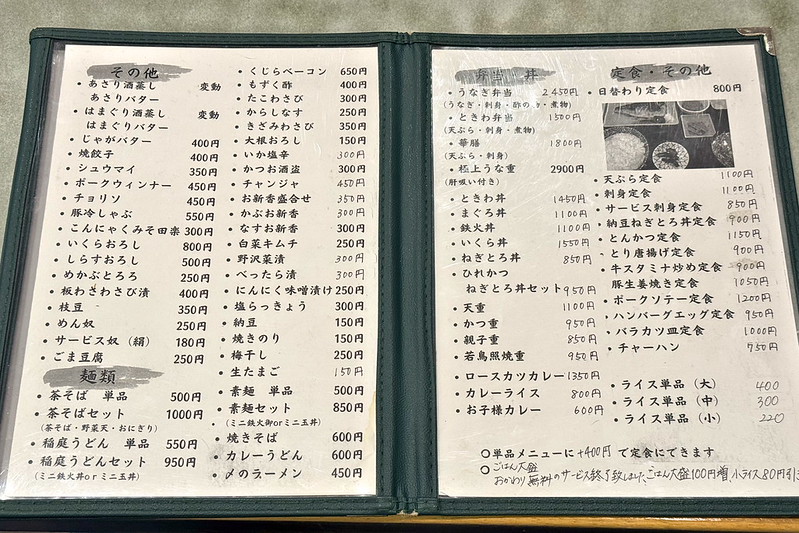 その他
・あさり酒蒸し 変動
あさりバター
・はまぐり酒蒸し 変動
はまぐりバター
・じゃがバター 400円
・焼餃子 400円
・シュウマイ 350円
・ポークウィンナー 450円
・チョリソ 450円
・豚冷しゃぶ 550円
・こんにゃくみそ田楽 300円
・いくらおろし 800円
・しらすおろし 500円
・めかぶとろろ 250円
・板わさわさび漬 400円
・枝豆 350円
・めん奴 250円
・サービス奴(絹) 180円
・ごま豆腐 250円
麺類
・茶そば 単品 500円
・茶そばセット 1000円
(茶そば・野菜天・おにぎり)
・稲庭うどん 単品 550円
・稲庭うどんセット 950円
(ミニ鉄火丼orミニ玉丼)
・くじらベーコン 650円
・もずく酢 400円
・たこわさび 300円
・からしなす 250円
・きざみわさび 350円
・大根おろし 150円
・いか塩辛 300円
・かつお酒盗 300円
・チャンジャ 450円
・お新香盛合せ 350円
・かぶお新香 300円
・なすお新香 300円
・白菜キムチ 250円
・野沢菜漬 300円
・べったら漬 300円
・にんにく味噌漬け 250円
・塩らっきょう 300円
・納豆 150円
・焼きのり 150円
・梅干し 250円
・生たまご 150円
・素麺 単品 500円
・素麺セット 850円
(ミニ鉄火御orミニ玉丼)
・焼きそば 600円
・カレーうどん 600円
・〆のラーメン 450円
弁当 丼
・うなぎ弁当 2450円
(うなぎ・刺身・酢の物・煮物)
・ときわ弁当 1500円
(天ぷら・刺身・煮物)
・華膳 1800円
(天ぷら・刺身)
・極上うな重 2900円
(肝吸い付き)
・ときわ丼 1450円
・まぐろ丼 1100円
・鉄火丼 1100円
・いくら丼 1550円
・ねぎとろ丼 850円
・ひれかつ
ねぎとろ丼セット 950円
・天重 1100円
・かつ重 950円
・親子重 850円
・若鳥照焼重 950円
・ロースカツカレー 1350円
・カレーライス 800円
・お子様カレー 600円
定食・その他
・日替わり定食 800円
・天ぷら定食 1100円
・刺身定食 1100円
・サービス刺身定食 850円
・納豆ねぎとろ丼定食 900円
・とんかつ定食 1150円
・とり唐揚げ定食 900円
・牛スタミナ炒め定食 900円
・豚生姜焼き定食 1050円
・ポークソテー定食 1200円
・ハンバーグエッグ定食 950円
・バラカツ皿定食 1000円
・チャーハン 750円
・ライス単品(大) 400
・ライス単品(中) 300
・ライス単品(小) 220
○単品メニューに+400円で定食にできます
○ごはん大盛
おかわり無料のサービス終了致しました。ごはん大盛100円増、小ライス80円引き